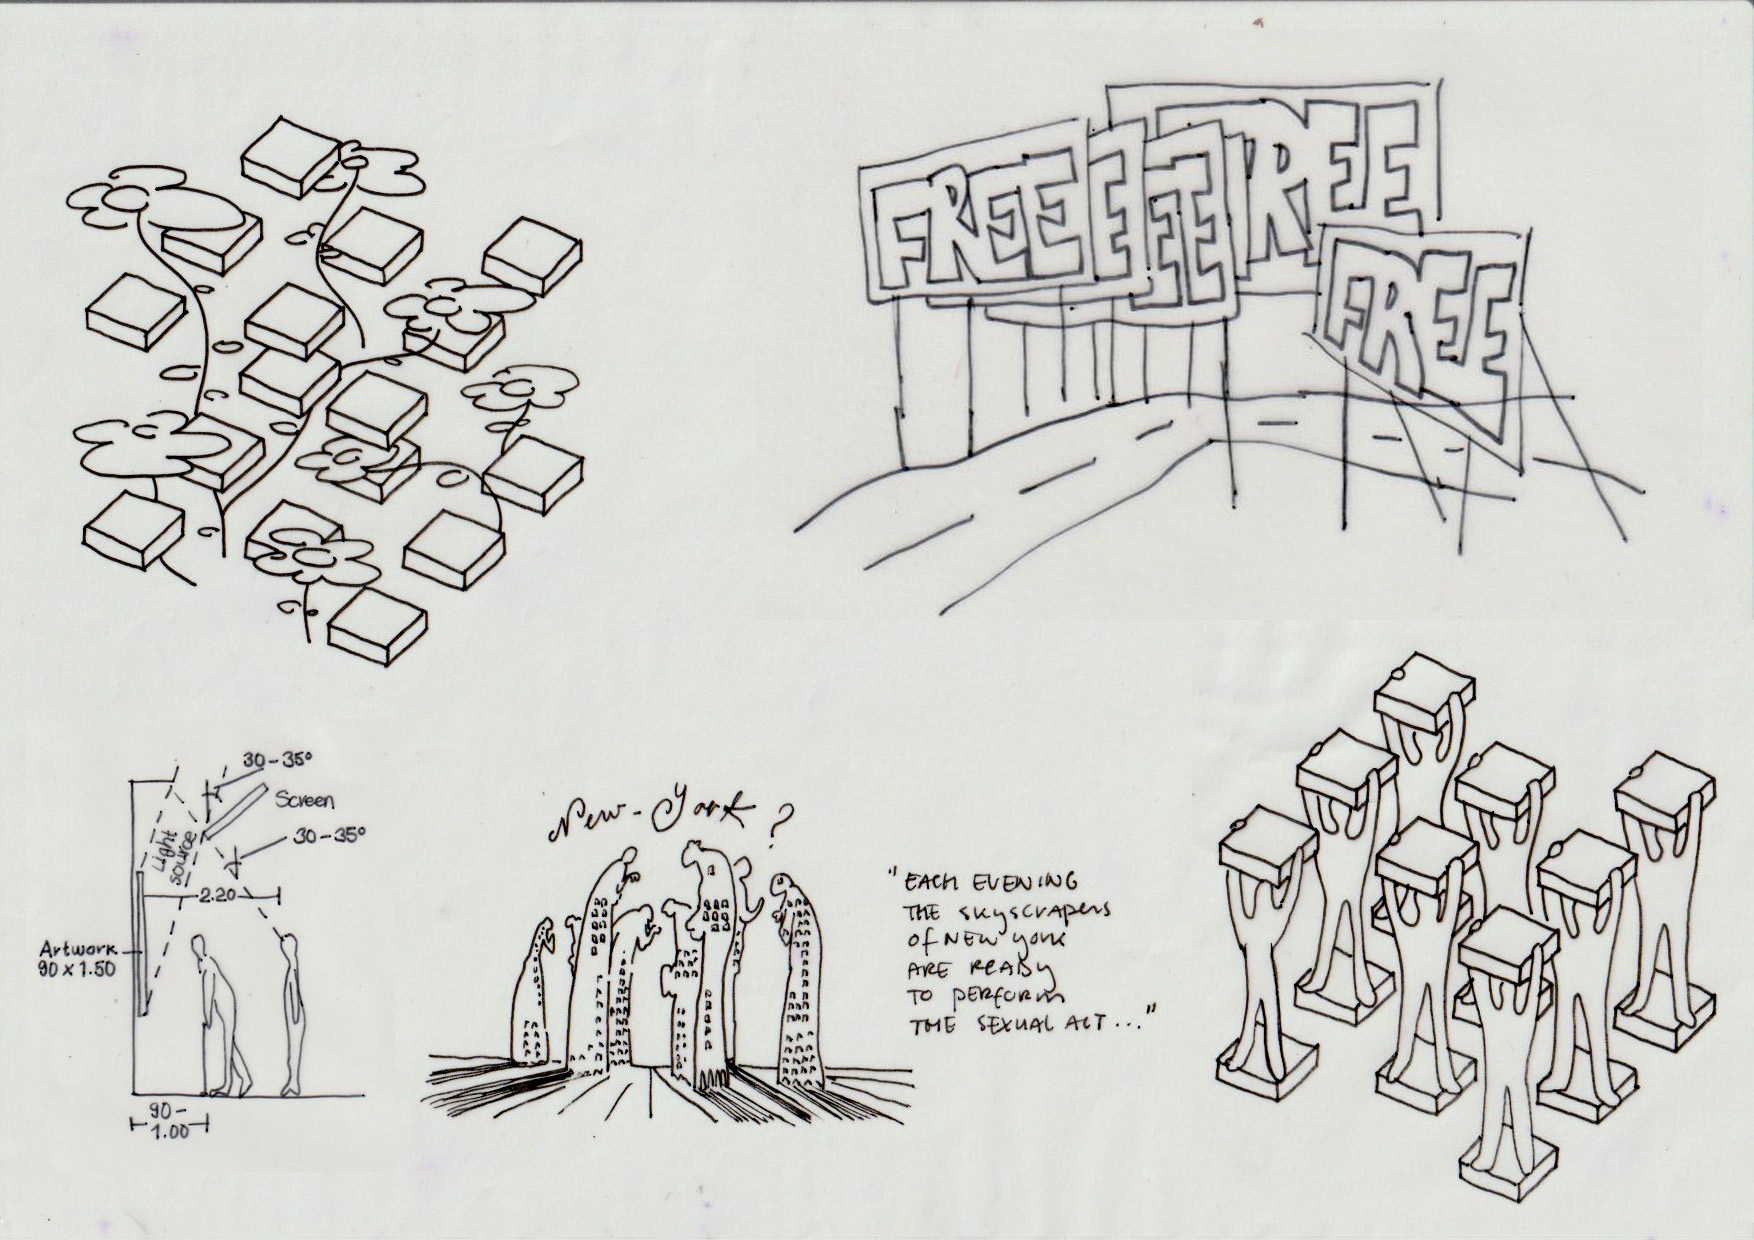 FREE
EE
EE
FREE
FREE
30-35°
Screen
30-35°
Light
source
2.20
Artwork
90 x 1.50
90 -
1.00
New-York ?
"EACH EVENING
THE SKYSCRAPERS
OF NEW YORK
ARE READY
TO PERFORM
THE SEXUAL ACT..."